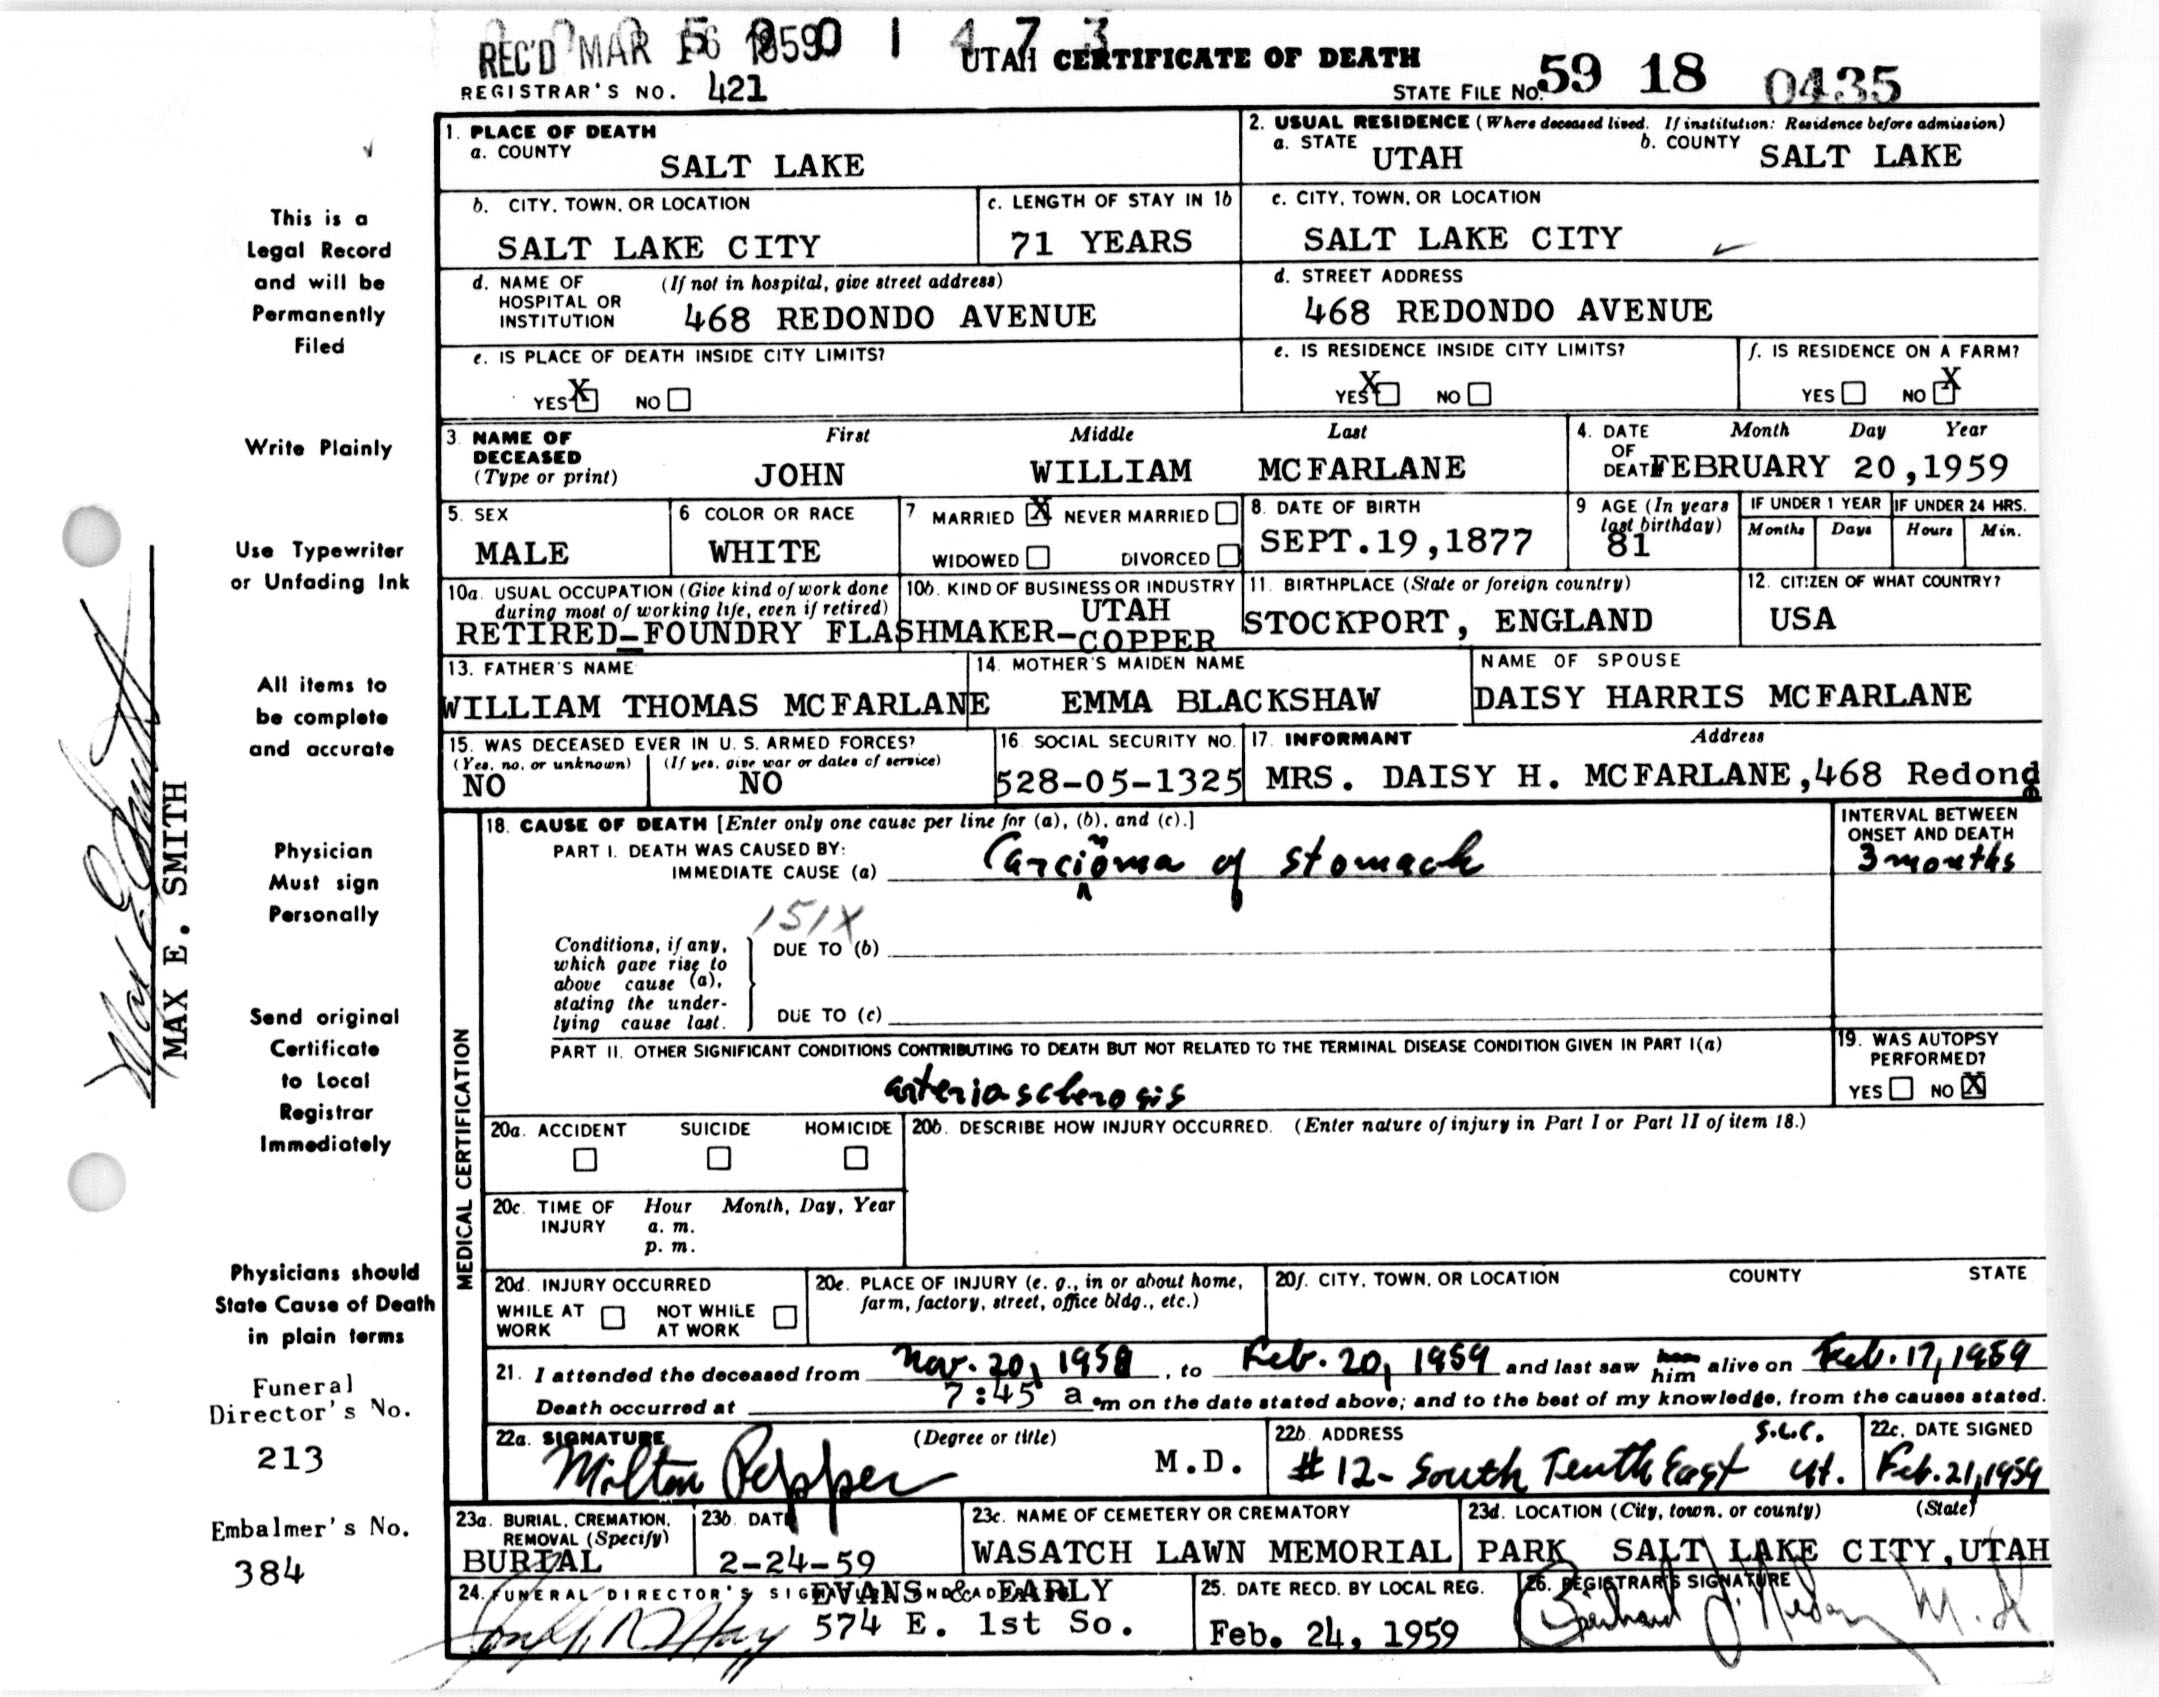 REC'D MAR 1959
0 1 4 7 3
UTAH CERTIFICATE OF DEATH
REGISTRAR'S NO. 421
STATE FILE NO. 59 18 0435
1. PLACE OF DEATH
a. COUNTY
SALT LAKE
2. USUAL RESIDENCE (Where deceased lived. If institution: Residence before admission)
a. STATE UTAH
b. COUNTY SALT LAKE
b. CITY, TOWN, OR LOCATION
SALT LAKE CITY
c. LENGTH OF STAY IN 1b
71 YEARS
c. CITY, TOWN, OR LOCATION
SALT LAKE CITY
d. NAME OF (If not in hospital, give street address)
HOSPITAL OR
INSTITUTION 468 REDONDO AVENUE
d. STREET ADDRESS
468 REDONDO AVENUE
e. IS PLACE OF DEATH INSIDE CITY LIMITS?
YES X NO
e. IS RESIDENCE INSIDE CITY LIMITS?
YES X NO
f. IS RESIDENCE ON A FARM?
YES NO X
3. NAME OF DECEASED First Middle Last
(Type or print) JOHN WILLIAM MCFARLANE
4. DATE OF DEATH Month Day Year
FEBRUARY 20,1959
5. SEX
MALE
6 COLOR OR RACE
WHITE
7 MARRIED X NEVER MARRIED
WIDOWED DIVORCED
8. DATE OF BIRTH
SEPT.19,1877
9 AGE (In years last birthday)
81
IF UNDER 1 YEAR
Months Days
IF UNDER 24 HRS.
Hours Min.
10a. USUAL OCCUPATION (Give kind of work done
during most of working life, even if retired)
RETIRED-FOUNDRY FLASHMAKER-
10b. KIND OF BUSINESS OR INDUSTRY
UTAH
COPPER
11. BIRTHPLACE (State or foreign country)
STOCKPORT, ENGLAND
12. CITIZEN OF WHAT COUNTRY?
USA
13. FATHER'S NAME
WILLIAM THOMAS MCFARLANE
14. MOTHER'S MAIDEN NAME
EMMA BLACKSHAW
NAME OF SPOUSE
DAISY HARRIS MCFARLANE
15. WAS DECEASED EVER IN U. S. ARMED FORCES?
(Yes, no, or unknown) (If yes, give war or dates of service)
NO NO
16. SOCIAL SECURITY NO.
528-05-1325
17. INFORMANT Address
MRS. DAISY H. MCFARLANE,468 Redondo
MEDICAL CERTIFICATION
18. CAUSE OF DEATH [Enter only one cause per line for (a), (b), and (c).]
PART I. DEATH WAS CAUSED BY:
IMMEDIATE CAUSE (a) Carcinoma of stomach
INTERVAL BETWEEN
ONSET AND DEATH
3 months
151X
Conditions, if any,
which gave rise to
above cause (a),
stating the under-
lying cause last.
DUE TO (b)
DUE TO (c)
PART II. OTHER SIGNIFICANT CONDITIONS CONTRIBUTING TO DEATH BUT NOT RELATED TO THE TERMINAL DISEASE CONDITION GIVEN IN PART I(a)
arteriosclerosis
19. WAS AUTOPSY
PERFORMED?
YES NO X
20a. ACCIDENT SUICIDE HOMICIDE
20b. DESCRIBE HOW INJURY OCCURRED. (Enter nature of injury in Part I or Part II of item 18.)
20c. TIME OF INJURY Hour Month, Day, Year
a. m.
p. m.
20d. INJURY OCCURRED
WHILE AT WORK NOT WHILE AT WORK
20e. PLACE OF INJURY (e. g., in or about home,
farm, factory, street, office bldg., etc.)
20f. CITY, TOWN, OR LOCATION COUNTY STATE
21. I attended the deceased from Nov. 20, 1958, to Feb. 20, 1959 and last saw her him alive on Feb. 17, 1959
Death occurred at 7:45 a •m on the date stated above; and to the best of my knowledge, from the causes stated.
22a. SIGNATURE (Degree or title)
Milton Pepper M.D.
22b. ADDRESS
#12- South Tenth East S.L.C. Ut.
22c. DATE SIGNED
Feb. 21, 1959
23a. BURIAL, CREMATION,
REMOVAL (Specify)
BURIAL
23b. DATE
2-24-59
23c. NAME OF CEMETERY OR CREMATORY
WASATCH LAWN MEMORIAL PARK
23d. LOCATION (City, town, or county) (State)
SALT LAKE CITY,UTAH
24. FUNERAL DIRECTOR'S SIGNATURE AND ADDRESS
EVANS & EARLY
574 E. 1st So.
25. DATE RECD. BY LOCAL REG.
Feb. 24, 1959
26. REGISTRAR'S SIGNATURE
M.D
This is a
Legal Record
and will be
Permanently
Filed
Write Plainly
Use Typewriter
or Unfading Ink
All items to
be complete
and accurate
Physician
Must sign
Personally
Send original
Certificate
to Local
Registrar
Immediately
Physicians should
State Cause of Death
in plain terms
Funeral
Director's No.
213
Embalmer's No.
384
Max E. Smith
MAX E. SMITH